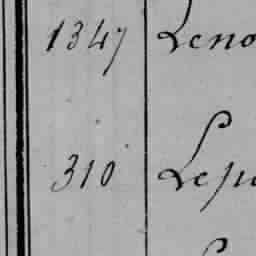 1347 Leno
310 Lepe